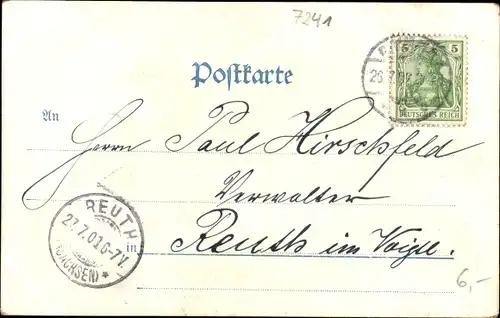 7241
5 5
Postkarte
DEUTSCHES REICH
An
Herrn Paul Hirschfeld
Verwalter
in Reuth im Voigtl.
REUTH
27.7.01 6-7V.
(SACHSEN) *
6,-